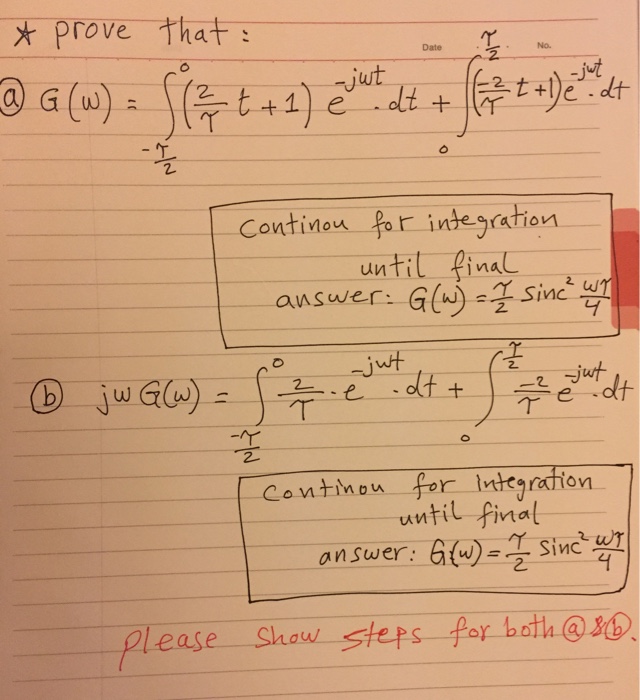 * prove that :
Date No.
ⓐ G(w) = ∫_{-τ/2}^{0} (2/τ t + 1) e^{-jwt} . dt + ∫_{0}^{τ/2} (-2/τ t + 1) e^{-jwt} . dt
Continou for integration
until final
answer: G(w) = τ/2 sinc² wτ/4
ⓑ jw G(w) = ∫_{-τ/2}^{0} 2/τ . e^{-jwt} . dt + ∫_{0}^{τ/2} -2/τ e^{-jwt} . dt
Continou for integration
until final
answer: G(w) = τ/2 sinc² wτ/4
please show steps for both ⓐ & ⓑ.